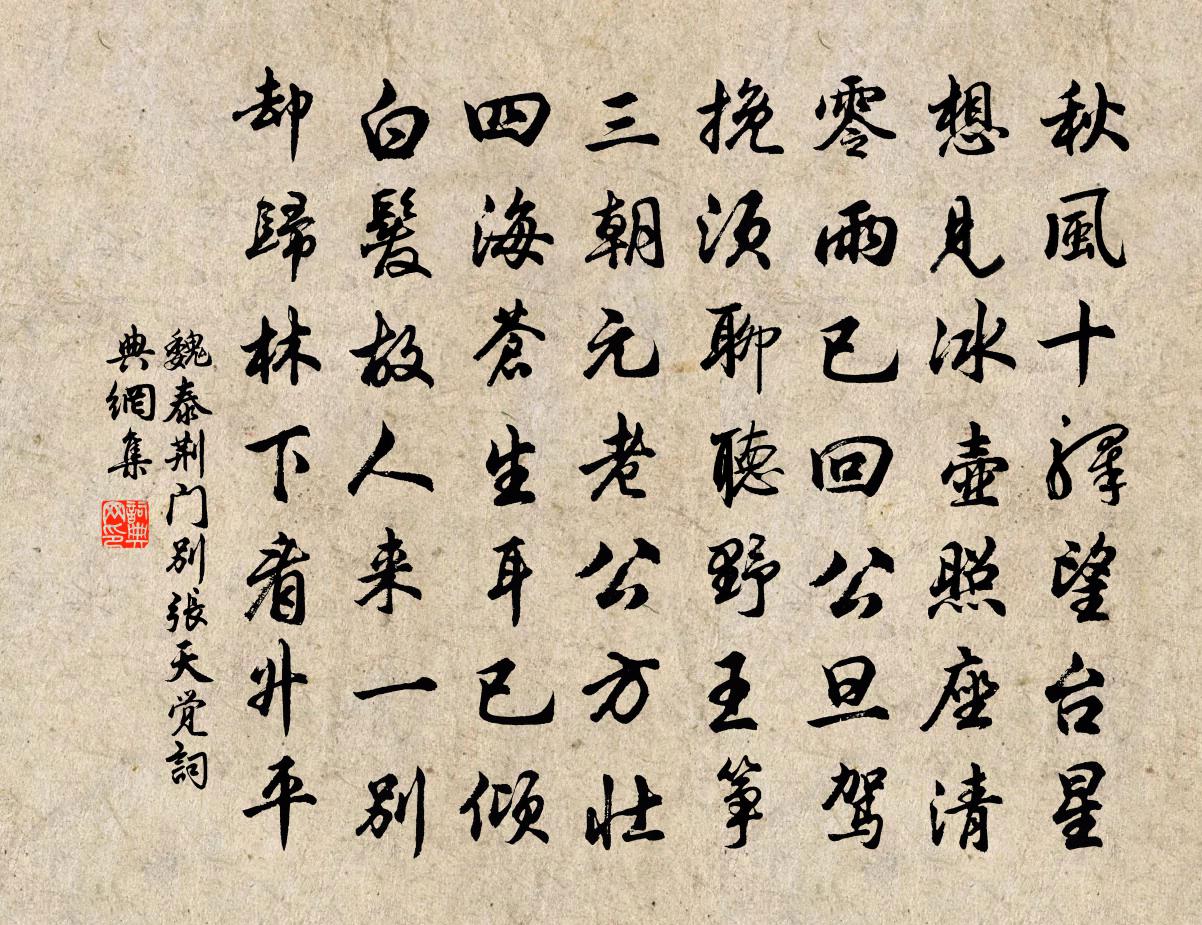 秋風十驛望台星
想見冰壺照座清
零雨已回公旦駕
挽須聊聽野王箏
三朝元老公方壯
四海蒼生耳已傾
白髮故人来一別
却歸林下看升平
魏泰荆门别張天覚詞
典網集
詞典网印